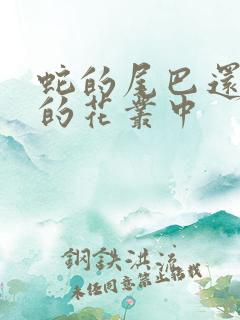 蛇的尾巴還
的花叢中
鋼鉄洪流
未經同意禁止轉載